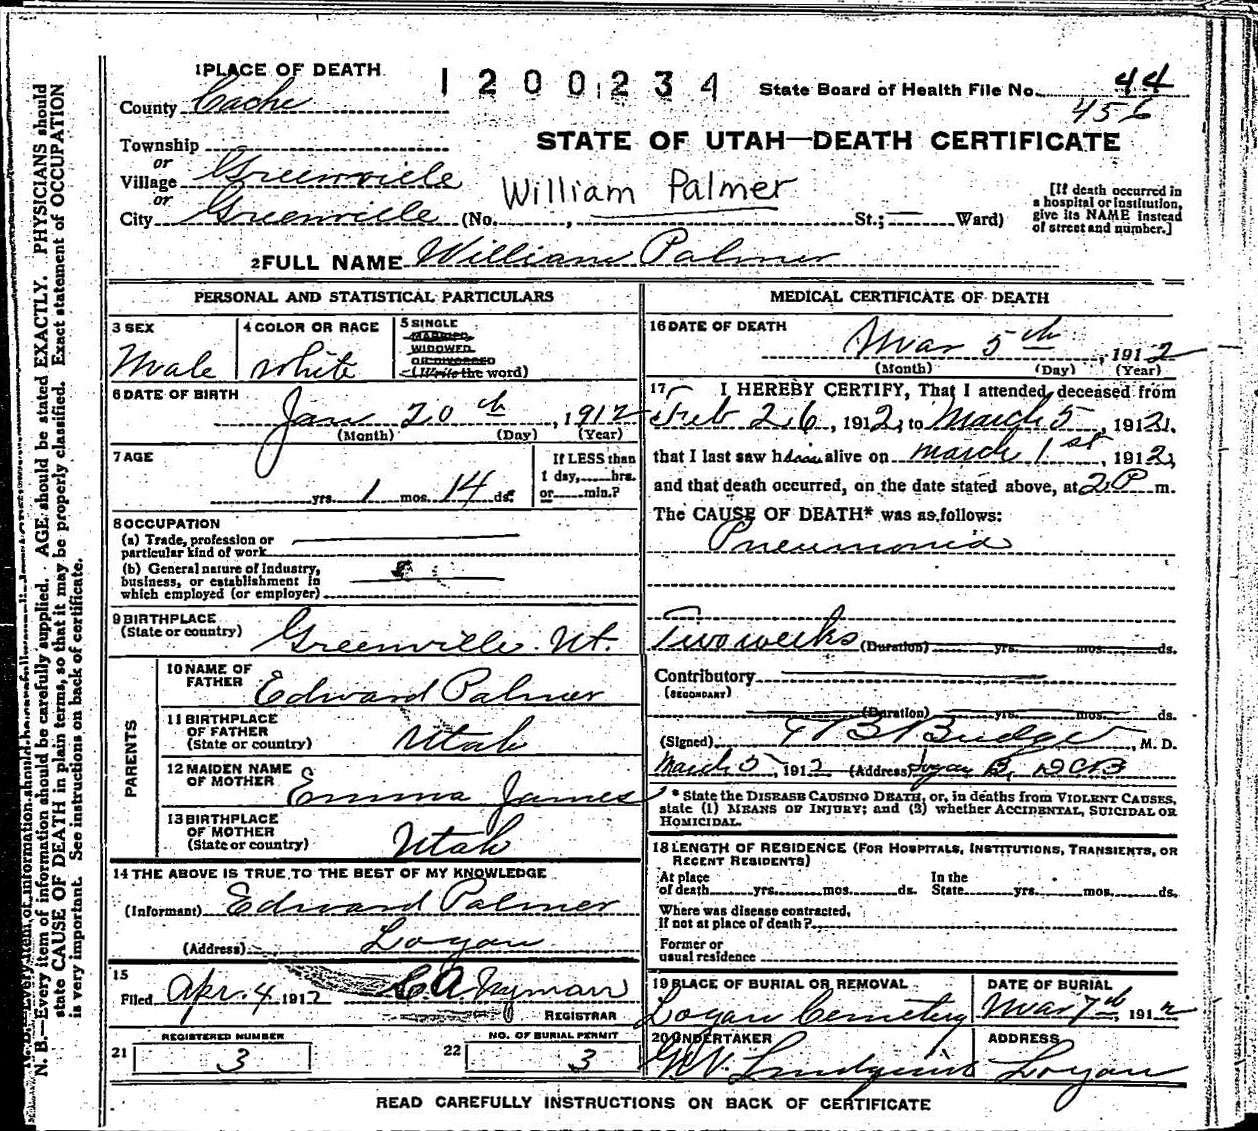 1 PLACE OF DEATH
1200234
State Board of Health File No. 44
456
County Cache
STATE OF UTAH—DEATH CERTIFICATE
Township
or
Village Greenville
or
City Greenville (No. , St.; Ward)
William Palmer
[If death occurred in
a hospital or institution,
give its NAME instead
of street and number.]
2 FULL NAME William Palmer
PERSONAL AND STATISTICAL PARTICULARS
3 SEX
Male
4 COLOR OR RACE
White
5 SINGLE
MARRIED
WIDOWED
OR DIVORCED
(Write the word)
6 DATE OF BIRTH
Jan 20th, 1912
(Month) (Day) (Year)
7 AGE
yrs. 1 mos. 14 ds.
If LESS than
1 day, hrs.
or min.?
8 OCCUPATION
(a) Trade, profession or
particular kind of work
(b) General nature of Industry,
business, or establishment in
which employed (or employer)
9 BIRTHPLACE
(State or country) Greenville. Ut.
PARENTS
10 NAME OF
FATHER Edward Palmer
11 BIRTHPLACE
OF FATHER
(State or country) Utah
12 MAIDEN NAME
OF MOTHER Emma James
13 BIRTHPLACE
OF MOTHER
(State or country) Utah
14 THE ABOVE IS TRUE TO THE BEST OF MY KNOWLEDGE
(Informant) Edward Palmer
(Address) Logan
15
Filed Apr. 4 1912 C. A. Nyman
REGISTRAR
REGISTERED NUMBER
21 3
NO. OF BURIAL PERMIT
22 3
MEDICAL CERTIFICATE OF DEATH
16 DATE OF DEATH
Mar 5th, 1912
(Month) (Day) (Year)
17 I HEREBY CERTIFY, That I attended deceased from
Feb 26, 1912, to March 5, 1912,
that I last saw him alive on March 1st, 1912,
and that death occurred, on the date stated above, at 2 P m.
The CAUSE OF DEATH* was as follows:
Pneumonia
Two weeks (Duration) yrs. mos. ds.
Contributory
(SECONDARY)
(Duration) yrs. mos. ds.
(Signed) Budge, M. D.
March 5, 1912 (Address) Logan
* State the DISEASE CAUSING DEATH, or, in deaths from VIOLENT CAUSES,
state (1) MEANS OF INJURY; and (2) whether ACCIDENTAL, SUICIDAL OR
HOMICIDAL.
18 LENGTH OF RESIDENCE (FOR HOSPITALS, INSTITUTIONS, TRANSIENTS, OR
RECENT RESIDENTS)
At place
of death yrs. mos. ds.
In the
State yrs. mos. ds.
Where was disease contracted,
If not at place of death?
Former or
usual residence
19 PLACE OF BURIAL OR REMOVAL
Logan Cemetery
DATE OF BURIAL
Mar 7th, 1912
20 UNDERTAKER
Lundquist
ADDRESS
Logan
READ CAREFULLY INSTRUCTIONS ON BACK OF CERTIFICATE
N. B.—Every item of information should be carefully supplied. AGE should be stated EXACTLY. PHYSICIANS should
state CAUSE OF DEATH in plain terms, so that it may be properly classified. Exact statement of OCCUPATION
is very important. See instructions on back of certificate.